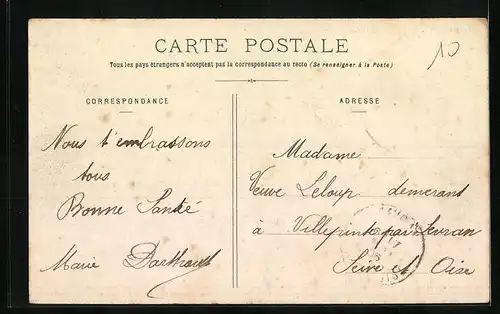 CARTE POSTALE
10
Tous les pays étrangers n'acceptent pas la correspondance au recto (Se renseigner à la Poste)
CORRESPONDANCE
Nous t'embrassons
tous
Bonne Santé
Marie
ADRESSE
Madame
Veuve Leloup demerant
à Villepinte par Sevran
Seine et Oise